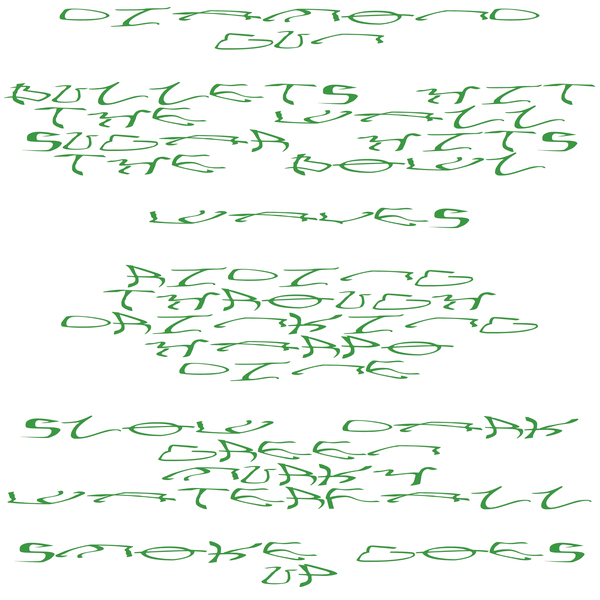 DIAMOND
GUN
BULLETS HIT
THE WALL
SUGAR HITS
THE BOWL
WAVES
RIDING
THROUGH
DRINKING
DINE
SLOW DARK
GREEN
WATERFALL
SMOKE GOES
UP